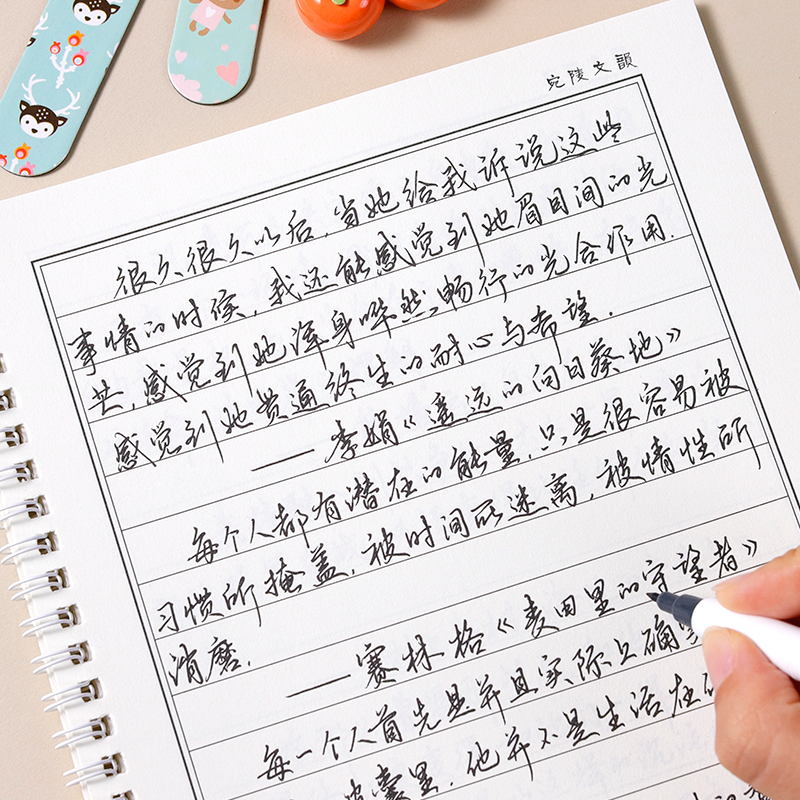 宛陵文韻
很久很久以后,当她给我诉说这些
事情的时候,我还能感觉到她眉目间的光
芒,感觉到她浑身哗然畅行的光合作用.
感觉到她贯通终生的耐心与希望.
——李娟《遥远的向日葵地》
每个人都有潜在的能量,只是很容易被
习惯所掩盖,被时间所迷离,被惰性所
消磨.
——塞林格《麦田里的守望者》
每一个人首先是并且实际上确
囊里,他并不是生活在